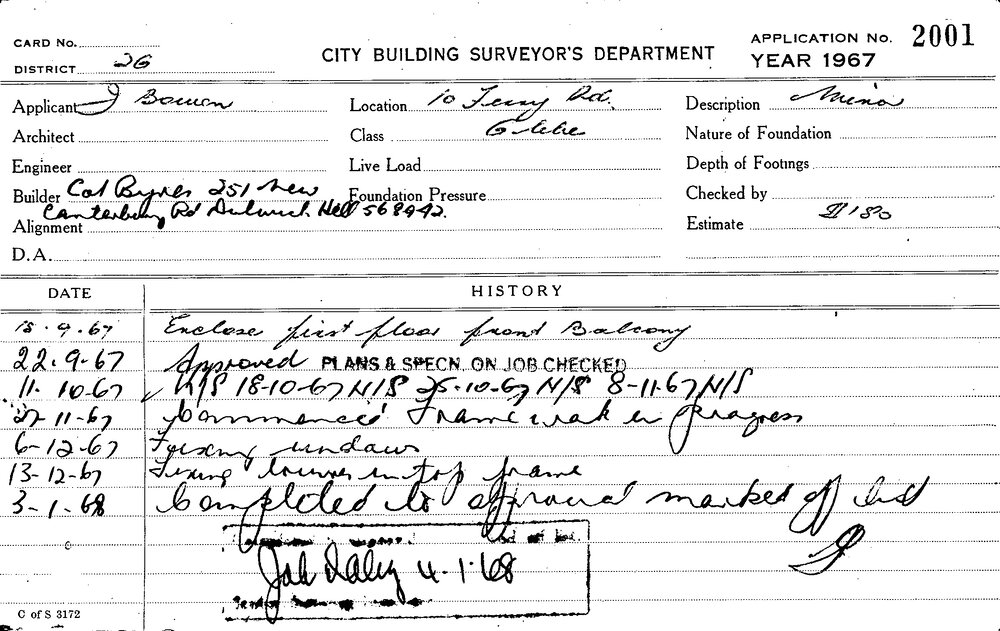 CARD No.
DISTRICT 26
CITY BUILDING SURVEYOR'S DEPARTMENT
APPLICATION No. 2001
YEAR 1967
Applicant J Bowen
Location 10 Ferry Rd.
Description Minor
Architect
Class Glebe
Nature of Foundation
Engineer
Live Load
Depth of Footings
Builder Col Byrnes 251 New
Foundation Pressure
Checked by
Canterbury Rd Dulwich Hill 568442.
Alignment
Estimate $180
D.A.
DATE HISTORY
15.9.67 Enclose first floor front Balcony
22.9.67 Approved PLANS & SPECN. ON JOB CHECKED
11.10.67 N/S 18-10-67 N/S 25-10-67 N/S 8-11-67 N/S
11-67 Commenced Framework in progress
6-12-67 Fixing windows
13-12-67 Fixing louvres in top frame
3-1-68 Completed to approval marked off list
4.1.68
C of S 3172